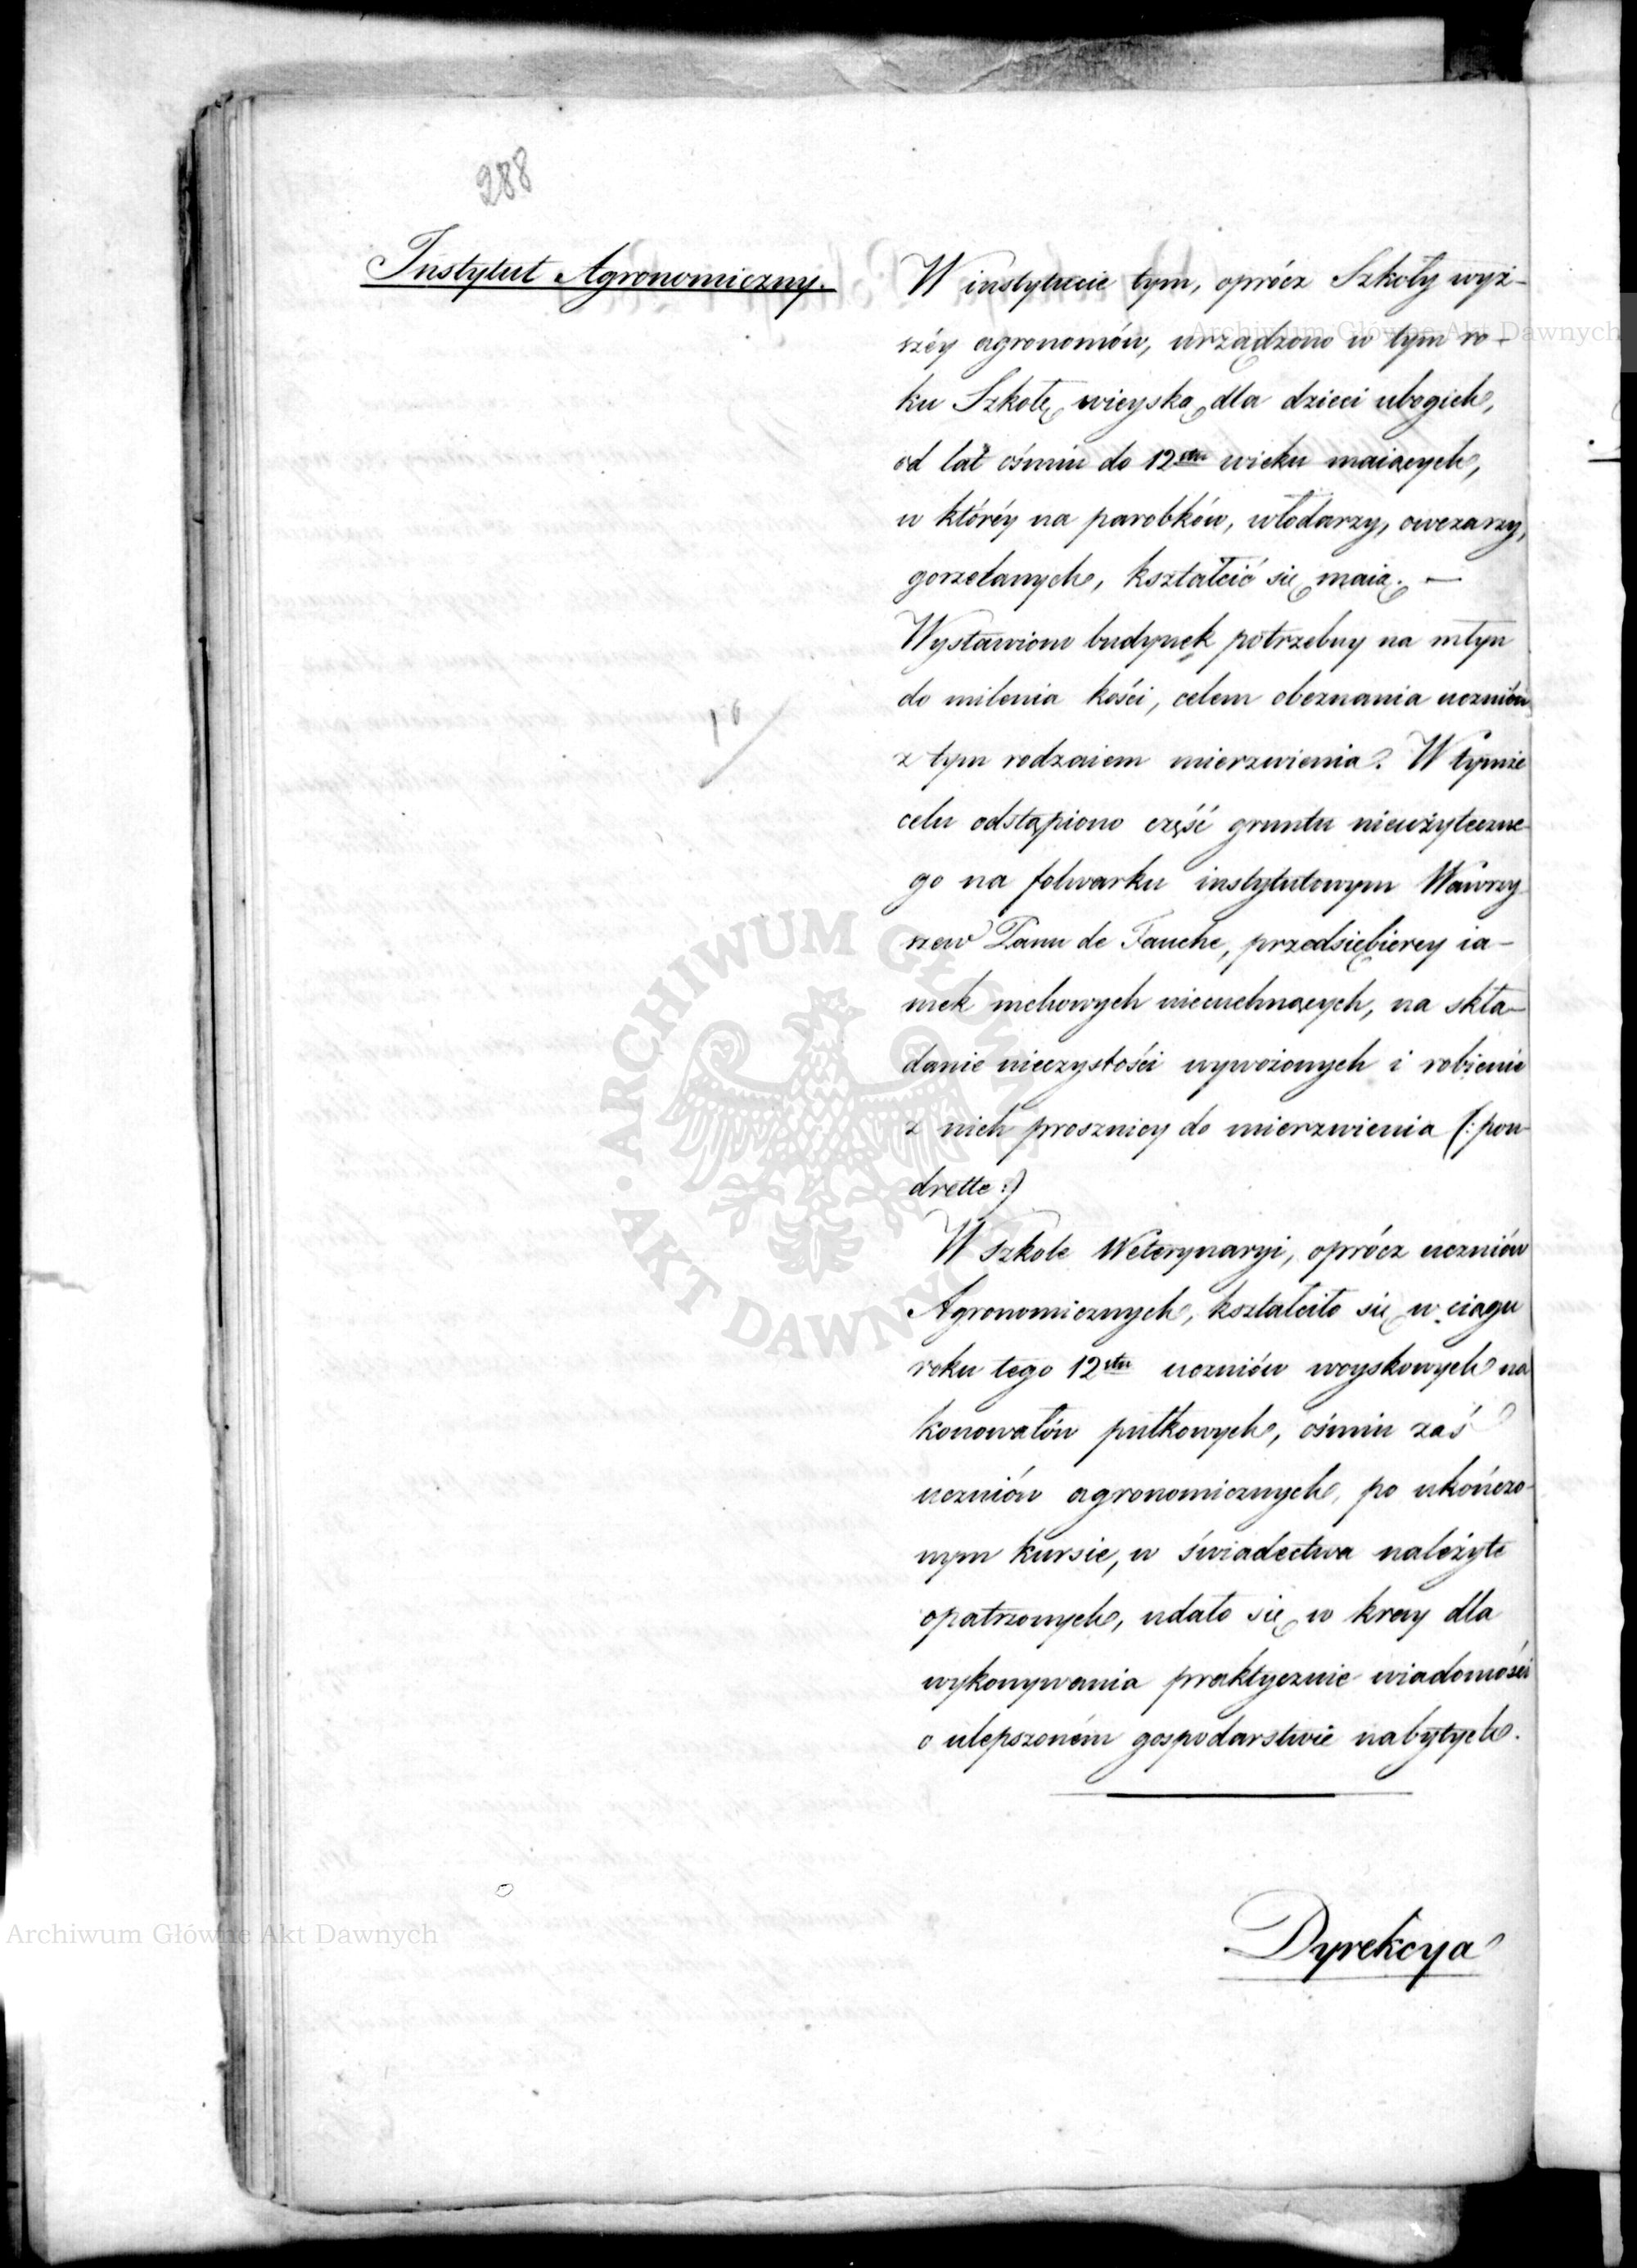 288
Instytut Agronomiczny.
W instytucie tym, oprócz Szkoły wyż-
széy agronomów, urządzono w tym ro-
ku Szkołę wieyską dla dzieci ubogich,
od lat ośmiu do 12stu wieku maiących,
w któréy na parobków, włodarzy, owczarzy,
gorzelanych, kształcić się maią. —
Wystawiono budynek potrzebny na młyn
do milenia kości, celem obeznania uczniów
z tym rodzaiem mierzwienia. W tymże
celu odstąpiono część gruntu nieużyteczne-
go na folwarku instytutowym Wawrzy-
szew Panu de Fauche, przedsiębiercy ia-
mek mchowych niecuchnących, na skła-
danie nieczystości wywożonych i robienie
z nich prosznicy do mierzwienia (: pou-
drette :)
W szkole Weterynaryi, oprócz uczniów
Agronomicznych, kształciło się w ciągu
roku tego 12stu uczniów woyskowych na
konowałów pułkowych, ośmiu zaś
uczniów agronomicznych, po ukończo-
nym kursie, w świadectwa należyte
opatrzonych, udało się w kray dla
wykonywania praktycznie wiadomości
o ulepszoném gospodarstwie nabytych.
Dyrekcya
10
Archiwum Główne Akt Dawnych
Archiwum Główne Akt Dawnych
ARCHIWUM GŁÓWNE AKT DAWNYCH